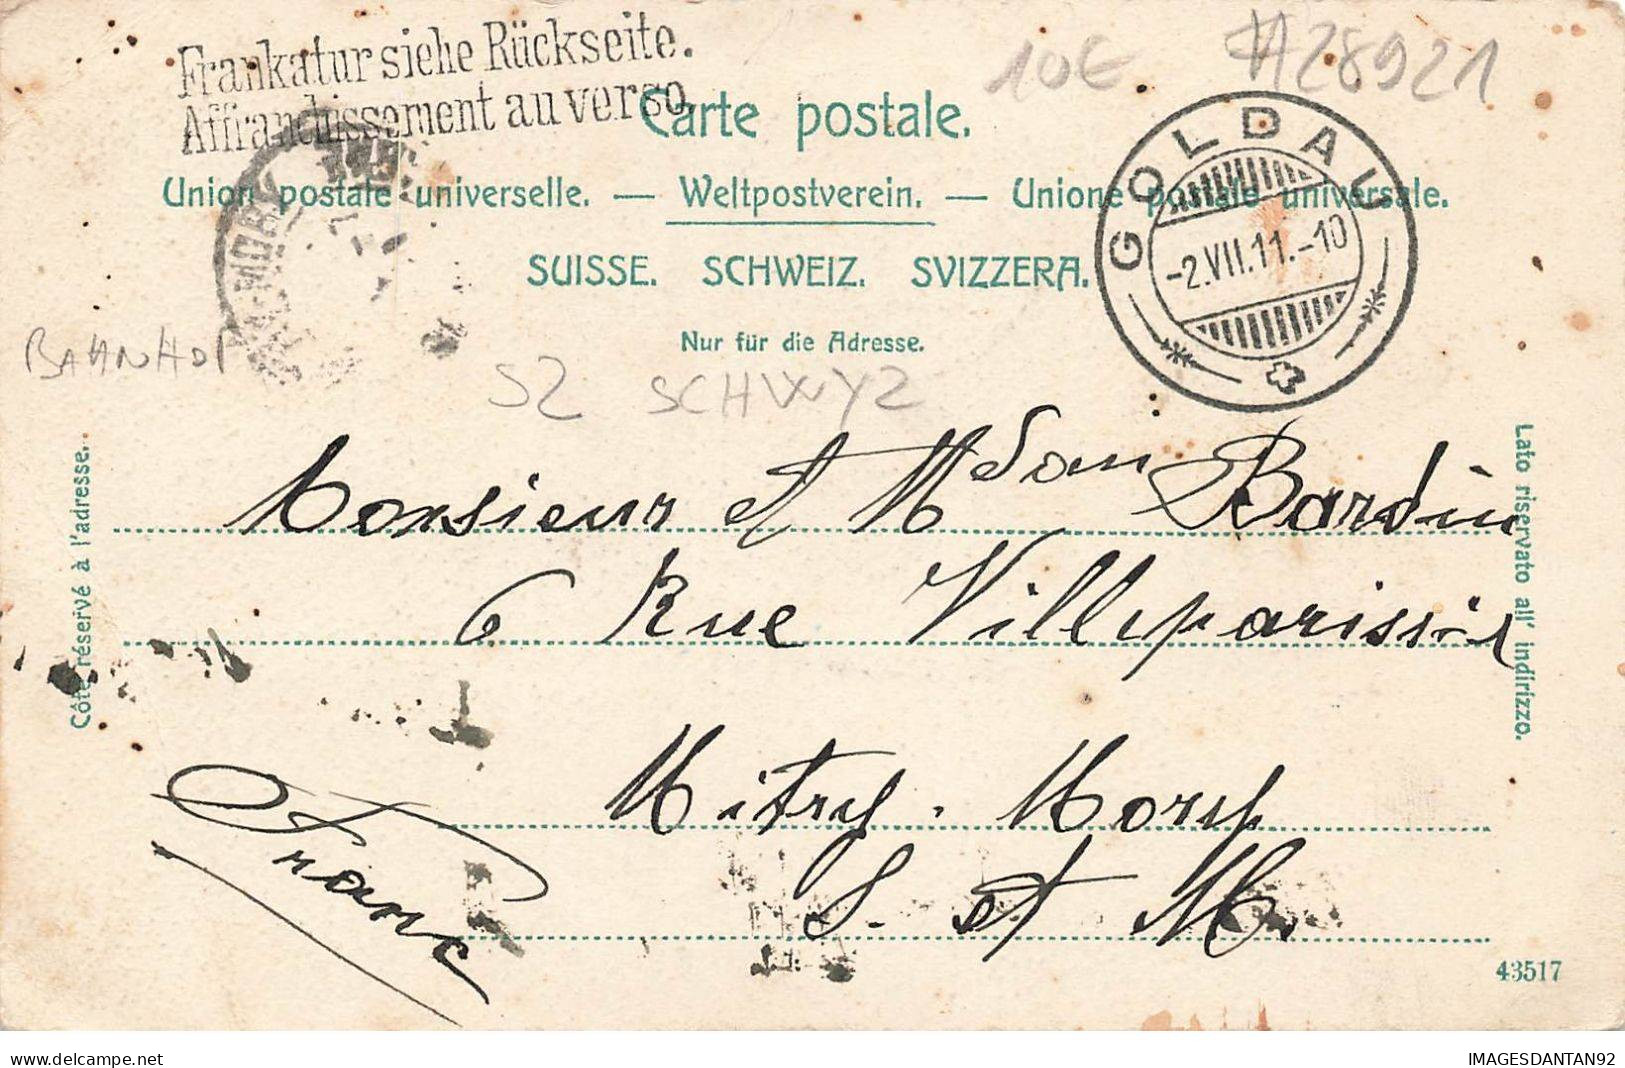 Frankatur siehe Rückseite.
Affranchissement au verso.
10€
#28921
Carte postale.
Union postale universelle. — Weltpostverein. — Unione postale universale.
SUISSE. SCHWEIZ. SVIZZERA.
Nur für die Adresse.
GOLDAU
-2.VII.11.-10
MORY
BAHNHOF
SZ SCHWYZ
Côté réservé à l'adresse.
Lato riservato all' indirizzo.
Monsieur et Mdam Bardin
6 Rue Villeparisis
Mitry. Mory
S. et M.
France
43517
IMAGESDANTAN92
delcampe.net